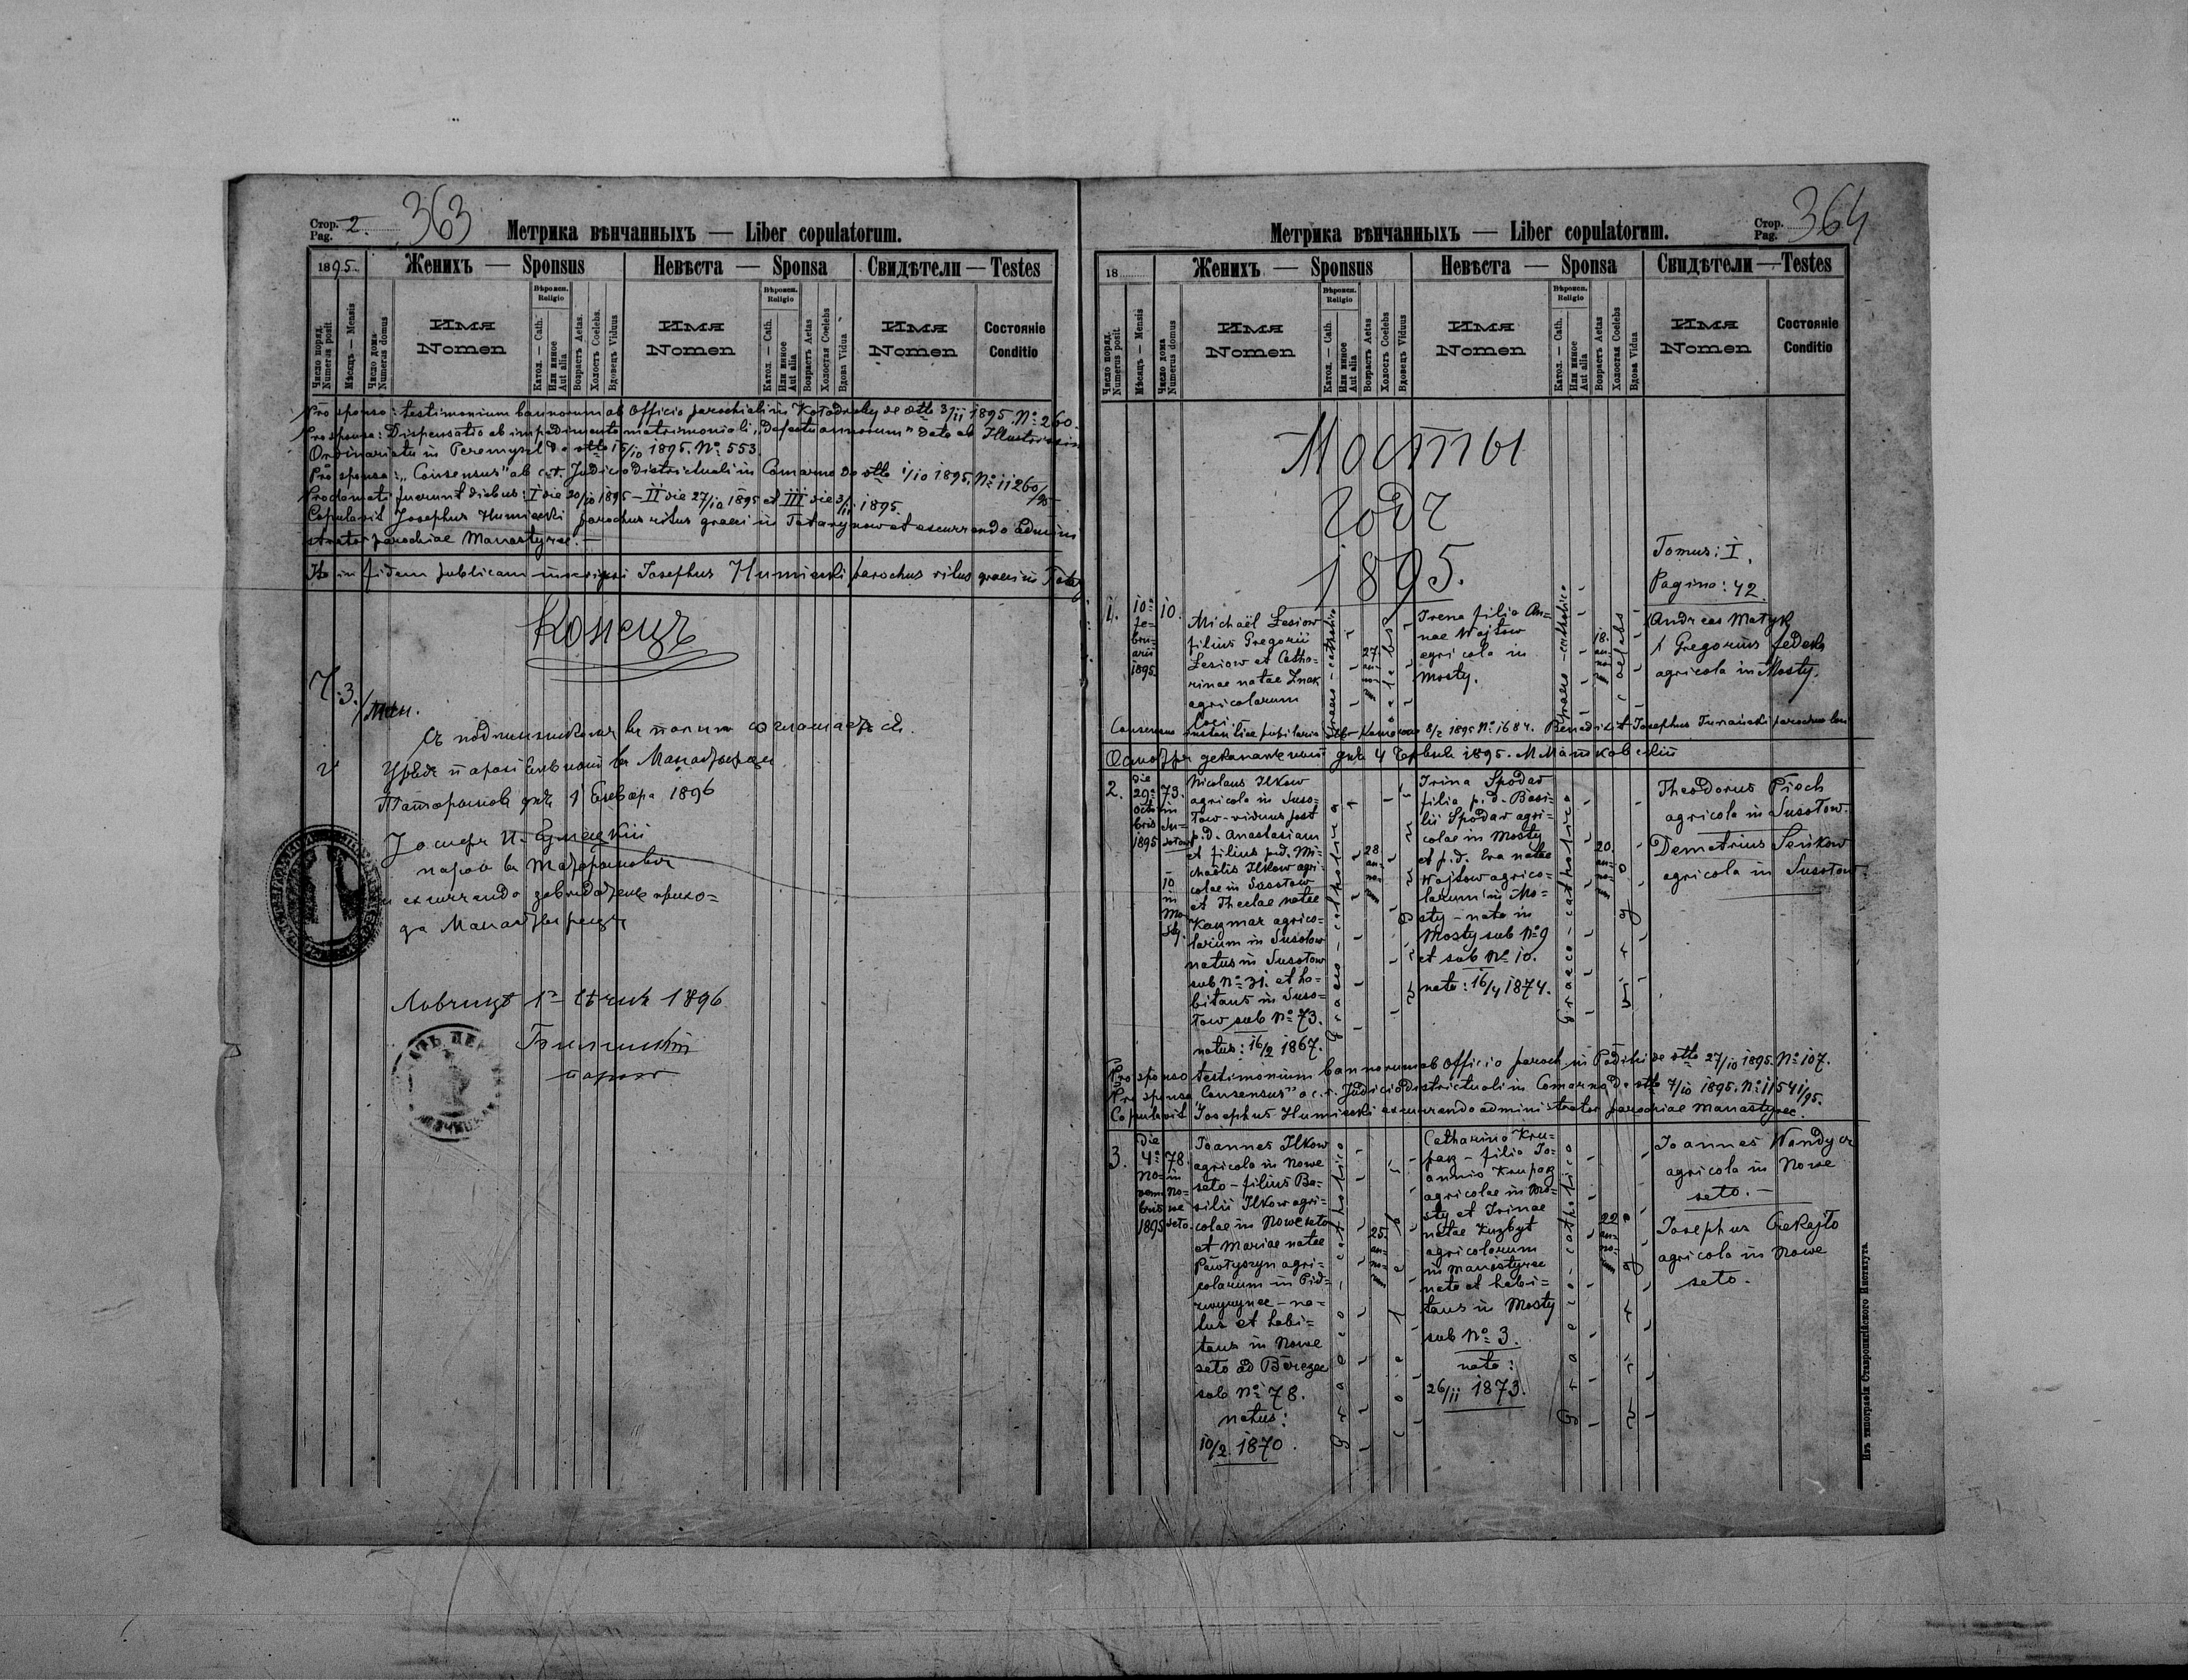 Стор. Pag. 2.
363
Метрика вѣнчанныхъ — Liber copulatorum.
1895
Женихъ — Sponsus
Невѣста — Sponsa
Свидѣтели — Testes
Число поряд. Numerus posit
Мѣсяцъ — Mensis
Число дома Numerus domus
Имя Nomen
Вѣроисп. Religio
Катол. — Cath.
Или инное Aut alia
Возрастъ Aetas.
Холостъ Coelebs.
Вдовецъ Viduus
Имя Nomen
Вѣроисп. Religio
Катол. — Cath.
Или инное Aut alia
Возрастъ Aetas
Холостая Coelebs
Вдова Vidua
Имя Nomen
Состояніе Conditio
Pro sponso: testimonium bannorum ab Officio parochiali in Kołodruby de dtto 3/11 1895. No 260.
Pro sponsa: Dispensatio ab impedimento matrimoniali „Defectu annorum" data ab Illustrissim
Ordinariatu in Peremysl de dtto 15/10 1895. No 553.
Pro sponsa: „Consensus" ab c.r. Judicio Districtuali in Comarno de dtto 1/10 1895. No 11260/95
Proclamati fuerunt diebus: I die 20/10 1895 — II die 27/10 1895 et III die 3/11 1895.
Copulavit Josephus Humiecki parochus ritus graeci in Tatarynow et excurrendo admini
strator parochiae Manastyrec. —
Ita in fidem publicam inscripsi Josephus Humiecki parochus ritus graeci in
Конецъ
Ч. 3.
Съ подлинникомъ
Урядъ парохіяльный въ Манастырци
Татариновъ дня 1 Енвара 1896
парохъ въ Татариновѣ
excurrendo завидатель прихо=
да Манастырець
1896
парохъ
Метрика вѣнчанныхъ — Liber copulatorum.
Стор. Pag.
364
18
Женихъ — Sponsus
Невѣста — Sponsa
Свидѣтели — Testes
Число поряд. Numerus posit
Мѣсяцъ — Mensis
Число дома Numerus domus
Имя Nomen
Вѣроисп. Religio
Катол. — Cath.
Или инное Aut alia
Возрастъ Aetas
Холостъ Coelebs
Вдовецъ Viduus
Имя Nomen
Вѣроисп. Religio
Катол. — Cath.
Или инное Aut alia
Возрастъ Aetas
Холостая Coelebs
Вдова Vidua
Имя Nomen
Состояніе Conditio
Мосты
годъ
1895.
Tomus: I.
Pagina: 42.
1.
10a
Fe=
bru=
arii
1895.
10.
Michaël Łesiow
filius Gregorii
Łesiow et Catha=
rinae natae Znak
agricolarum
loci.
graeco-catholica
27.
an=
no=
rum
coelebs
Irena filia An=
nae Wojtow
agricola in
Mosty.
graeco-catholica
18.
an=
no=
rum
coelebs
Andreas Matyk
Gregorius Fedech
agricola in Mosty.
Consensus instantiae pupilaris dtto Komarno 8/2 1895 No 1684. Benedixit Josephus Turiański parochus loci
2.
die
29a
octo=
bris
1895
73.
in
Su=
sołow
10
in
Mo=
sty.
Nicolaus Ilkow
agricola in Suso=
łow – viduus post
p.d. Anastasiam
et filius p.d. Mi=
chaëlis Ilkow agri=
colae in Susołow
et Theclae natae
Kaczmar agrico=
larum in Susołow
natus in Susołow
sub No 31. et ha=
bitans in Suso=
łow sub No 73.
natus: 16/2 1867.
graeco-catholica
28.
an=
no=
rum
Irina Spodar
filia p.d. Basi=
lii Spodar agri=
colae in Mosty
et p.d. Eva natae
Wojtow agrico=
larum in Mo=
sty – nata in
Mosty sub No 9
et sub No 10.
nata: 16/4 1874.
graeco-catholica
20.
an=
no=
rum
Theodorus Pioch
agricola in Susołow.
Demetrius Seńkow
agricola in Susołow.
Pro sponso testimonium bannorum ab Officio paroch. in Podilci de dtto 27/10 1895. No 107.
Pro sponsa „Consensus" a c.r. Judicio Districtuali in Comarno de dtto 7/10 1895. No 11541/95.
Copulavit Josephus Humiecki excurrendo administrator parochiae Manastyrec.
3.
die
4a
No=
vem=
bris
1895
78.
in
No=
we
seło.
Joannes Ilkow
agricola in Nowe
seło – filius Ba=
silii Ilkow agri=
colae in Nowe seło
et Mariae natae
Pawłyszyn agri=
colarum in Pid=
zwirynec – na=
tus et habi=
tans in Nowe
seło ad Berezec
sub No 78.
natus:
10/2 1870.
graeco-catholica
25.
an=
no=
rum
Catharina Kru=
pacz – filia Jo=
annis Krupacz
agricolae in Mo=
sty et Irinae
natae Kuzbyt
agricolarum
in Manastyrec
nata et habi=
tans in Mosty
sub No 3.
nata:
26/11 1873.
graeco-catholica
22
an=
no=
rum
Joannes Wandycz
agricola in Nowe
seło. —
Josephus Czekajło
agricola in Nowe
seło.
Изъ типографіи Ставропигійского Института.